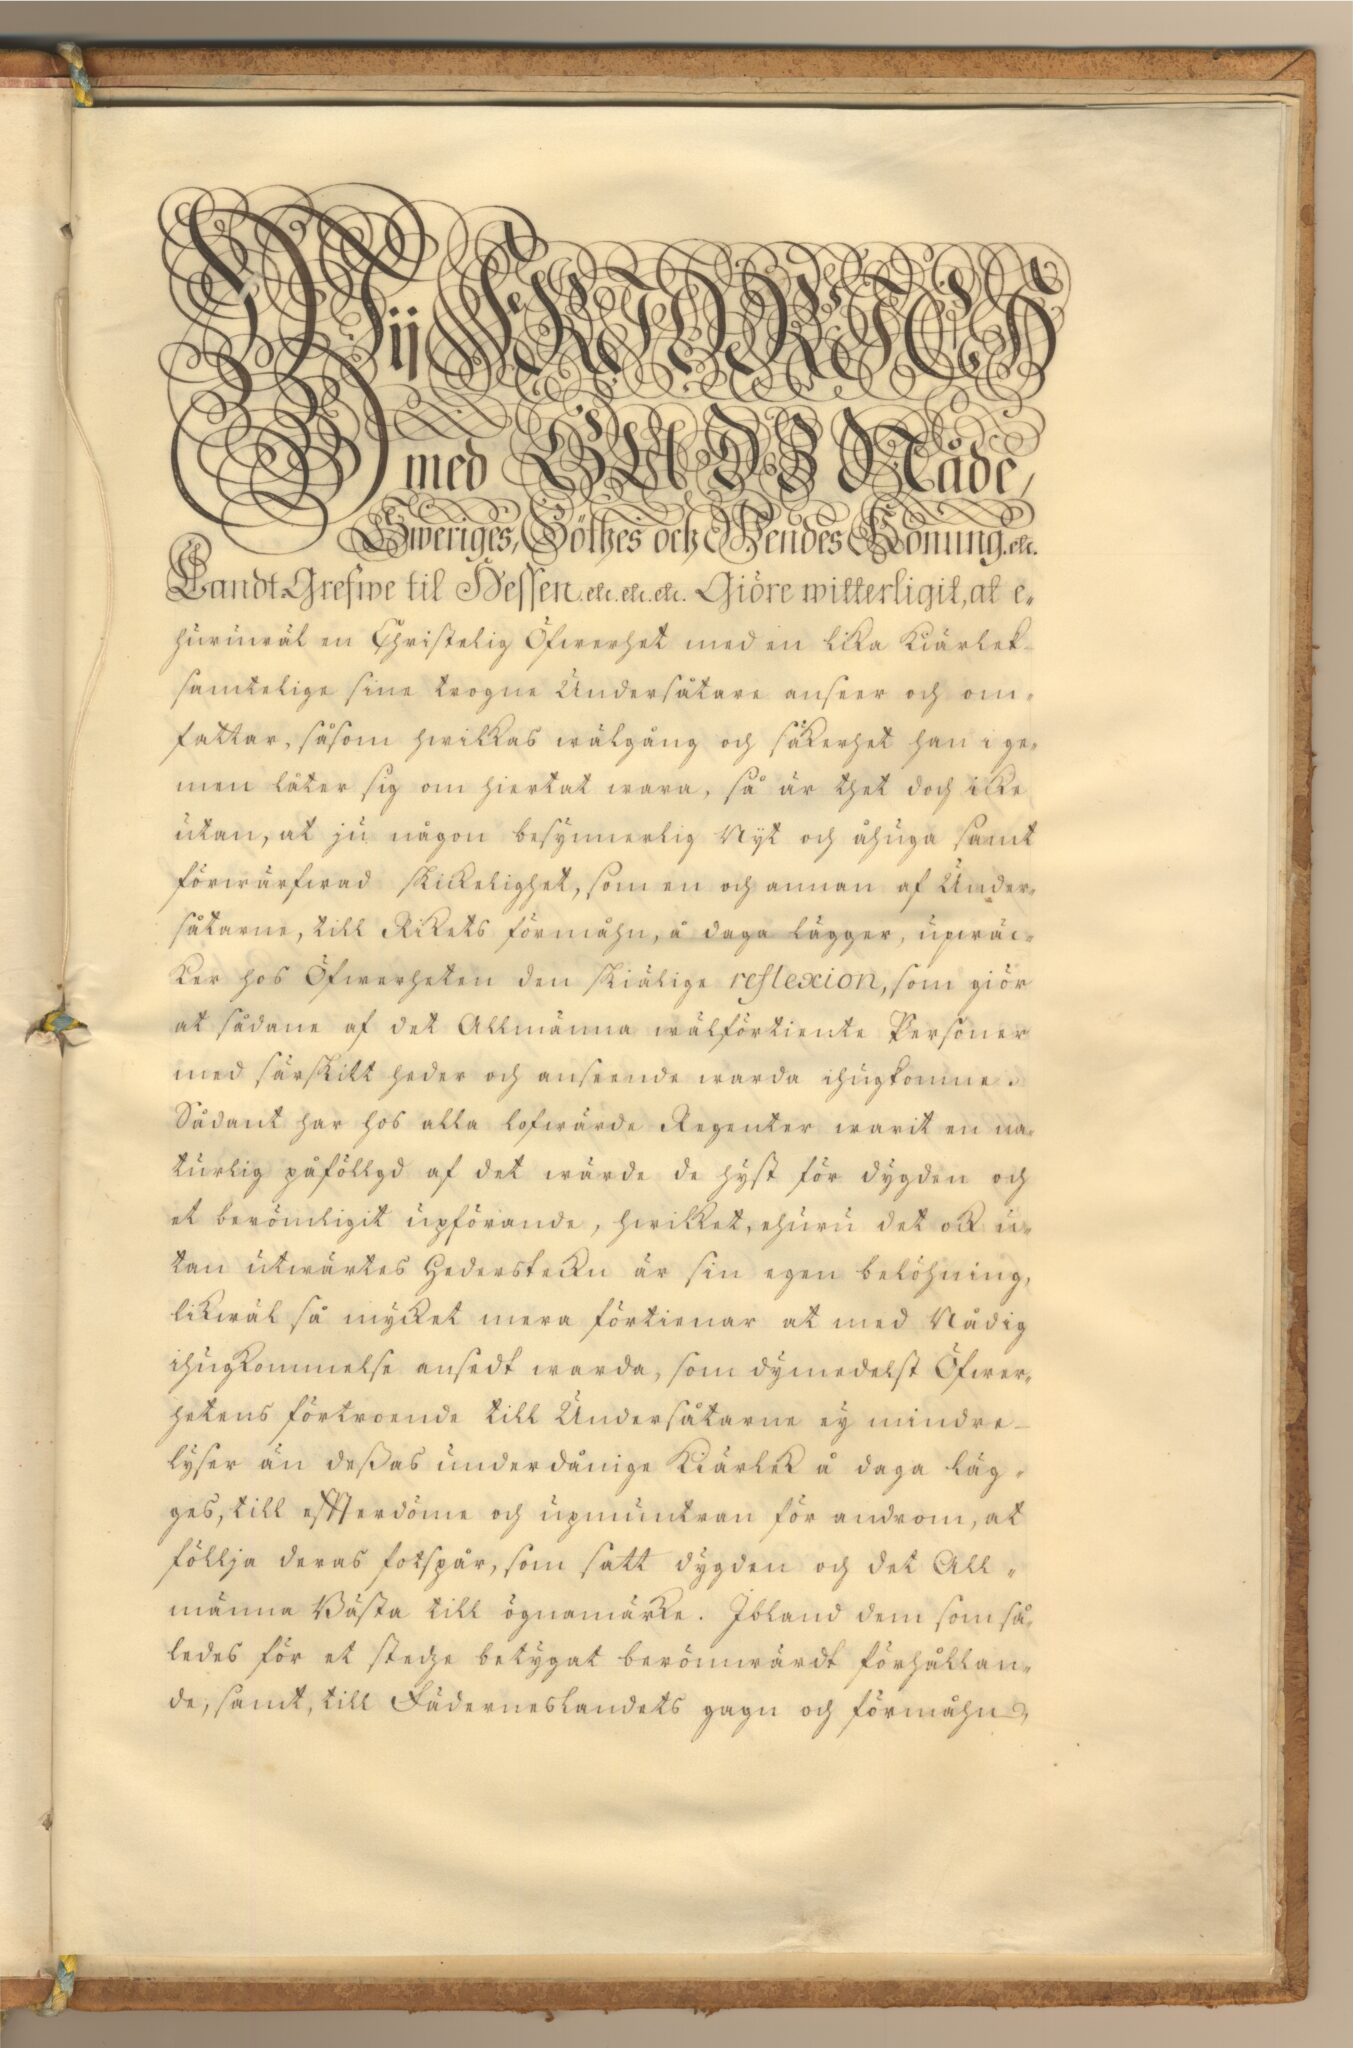 Wij FRIDRICH
med GUDZ Nåde,
Sweriges, Göthes och Wendes Konung. etc.
Landt Grefwe til Hessen. etc. etc. etc. Giöre witterligit, at e-
huruwäl en Christelig Öfwerhet med en lika Kiärlek
samtelige sine trogne Undersåtare anseer och om-
fattar, såsom hwilkas wälgång och säkerhet han i ge-
men låter sig om hiertat wara, så är thet doch icke
utan, at ju någon besynnerlig Nyt och åhuga samt
förwärfwad skickelighet, som en och annan af Under-
såtarne, till Rikets förmåhn, å daga lägger, upwäc-
ker hos Öfwerheten den skiälige reflexion, som giör
at sådane af det Allmänna wälförtiente Personer
med särskilt heder och anseende warda ihugkomne.
Sådant har hos alla lofwärde Regenter warit en na-
turlig påföllgd af det wärde de hyst för dygden och
et berömligit upförande, hwilket, ehuru det ock u-
tan utwärtes Hedersteckn är sin egen belöhning,
likwäl så mycket mera förtienar at med Nådig
ihugkommelse ansedt warda, som dymedelst Öfwer-
hetens förtroende till Undersåtarne ey mindre
lyser än deßas underdånige Kiärlek å daga läg-
ges, till efterdöme och upmuntran för androm, at
föllja deras fotspår, som satt dygden och det All-
männa Bästa till ögnamärke. Ibland dem som så-
ledes för et stedze betygat berömwärdt förhållan-
de, samt, till Fäderneslandets gagn och förmåhn,